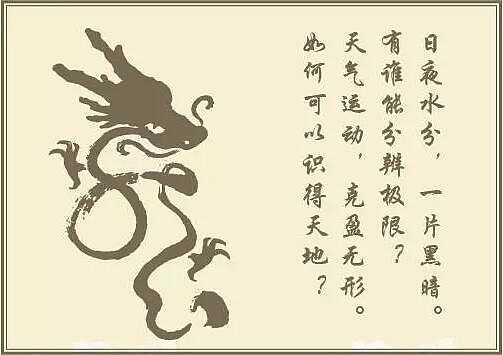 日夜水分，一片黑暗。
有谁能分辨极限？
天气运动，克盈无形。
如何可以识得天地？